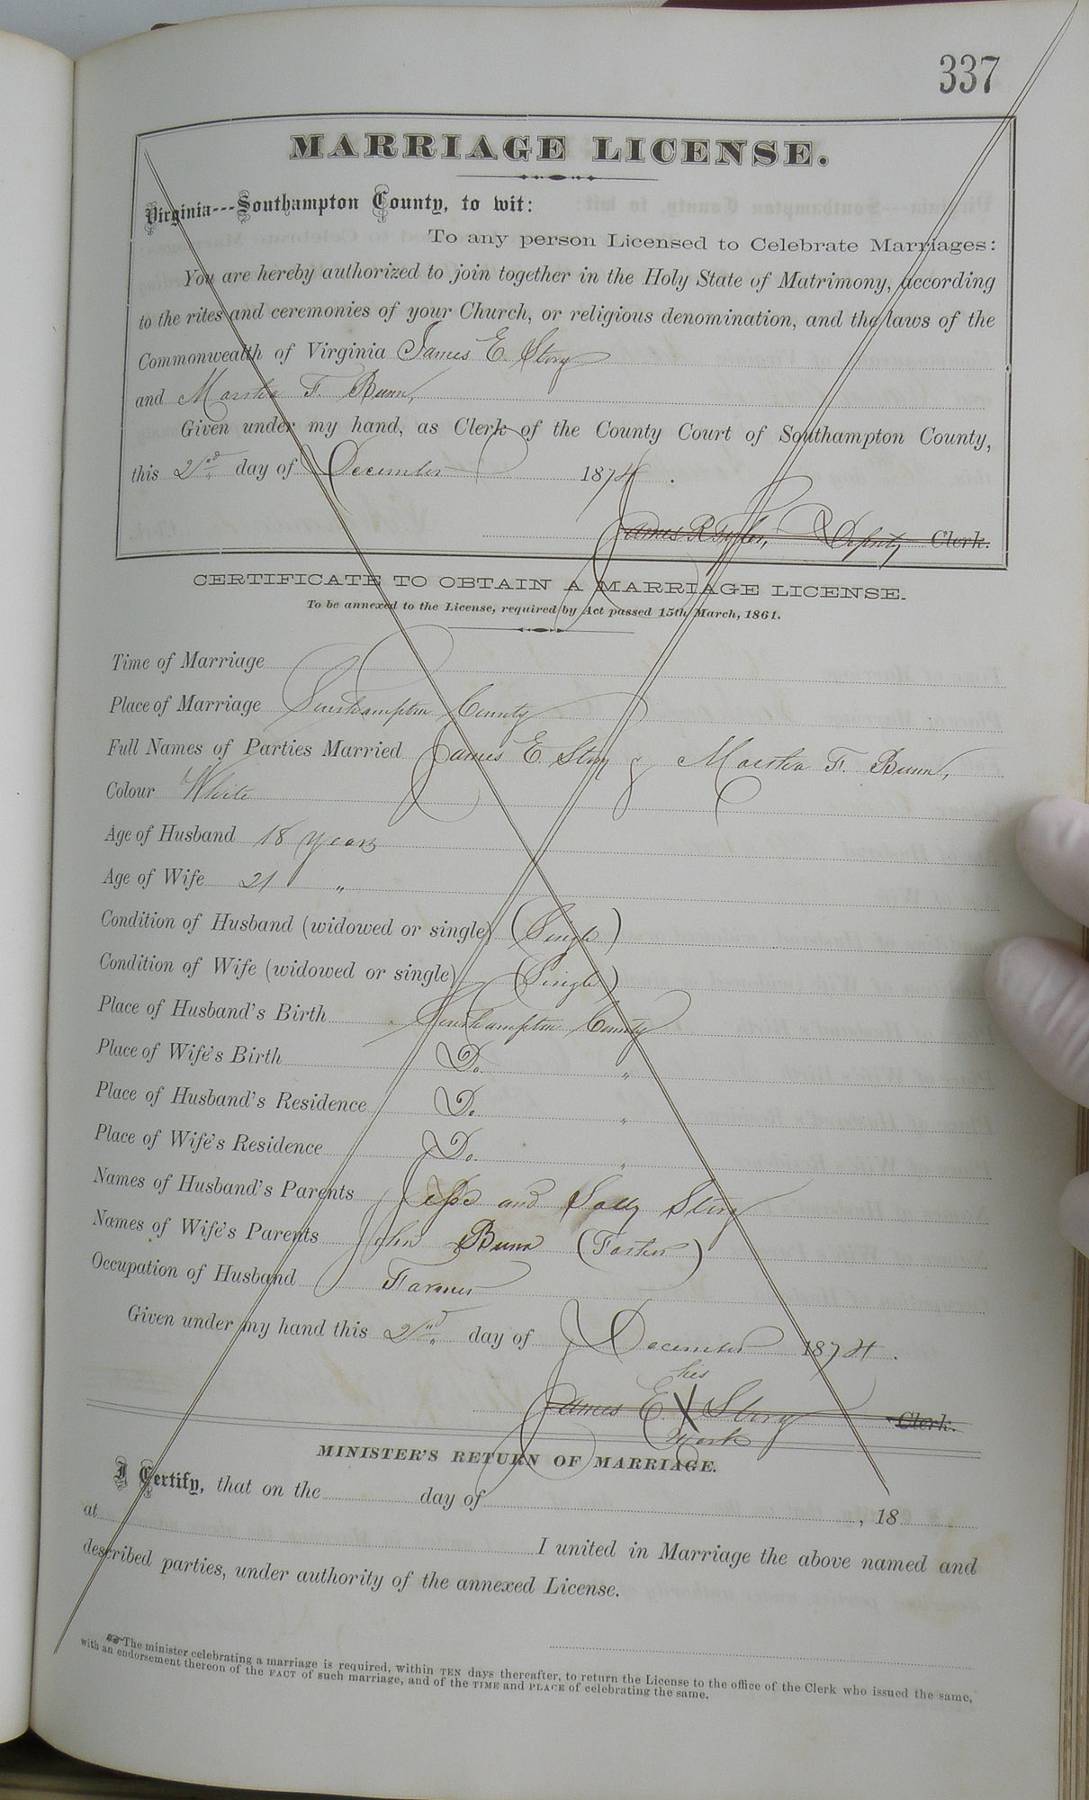 337
MARRIAGE LICENSE.
Virginia---Southampton County, to wit:
To any person Licensed to Celebrate Marriages:
You are hereby authorized to join together in the Holy State of Matrimony, according
to the rites and ceremonies of your Church, or religious denomination, and the laws of the
Commonwealth of Virginia James E. Story
and Martha F. Bunn,
Given under my hand, as Clerk of the County Court of Southampton County,
this 2nd day of December 1874.
James R Tyler, Deputy Clerk.
CERTIFICATE TO OBTAIN A MARRIAGE LICENSE.
To be annexed to the License, required by Act passed 15th March, 1861.
Time of Marriage
Place of Marriage Southampton County
Full Names of Parties Married James E. Story & Martha F. Bunn,
Colour White
Age of Husband 18 years
Age of Wife 21 "
Condition of Husband (widowed or single) (Single)
Condition of Wife (widowed or single) (Single)
Place of Husband's Birth Southampton County
Place of Wife's Birth Do. "
Place of Husband's Residence Do. "
Place of Wife's Residence Do. "
Names of Husband's Parents Jesse and Sally Story
Names of Wife's Parents John Bunn (Father)
Occupation of Husband Farmer
Given under my hand this 2nd day of December 1874.
his
James E. X Story Clerk.
mark
MINISTER'S RETURN OF MARRIAGE.
I Certify, that on the day of , 18
at I united in Marriage the above named and
described parties, under authority of the annexed License.
☞ The minister celebrating a marriage is required, within TEN days thereafter, to return the License to the office of the Clerk who issued the same,
with an endorsement thereon of the FACT of such marriage, and of the TIME and PLACE of celebrating the same.